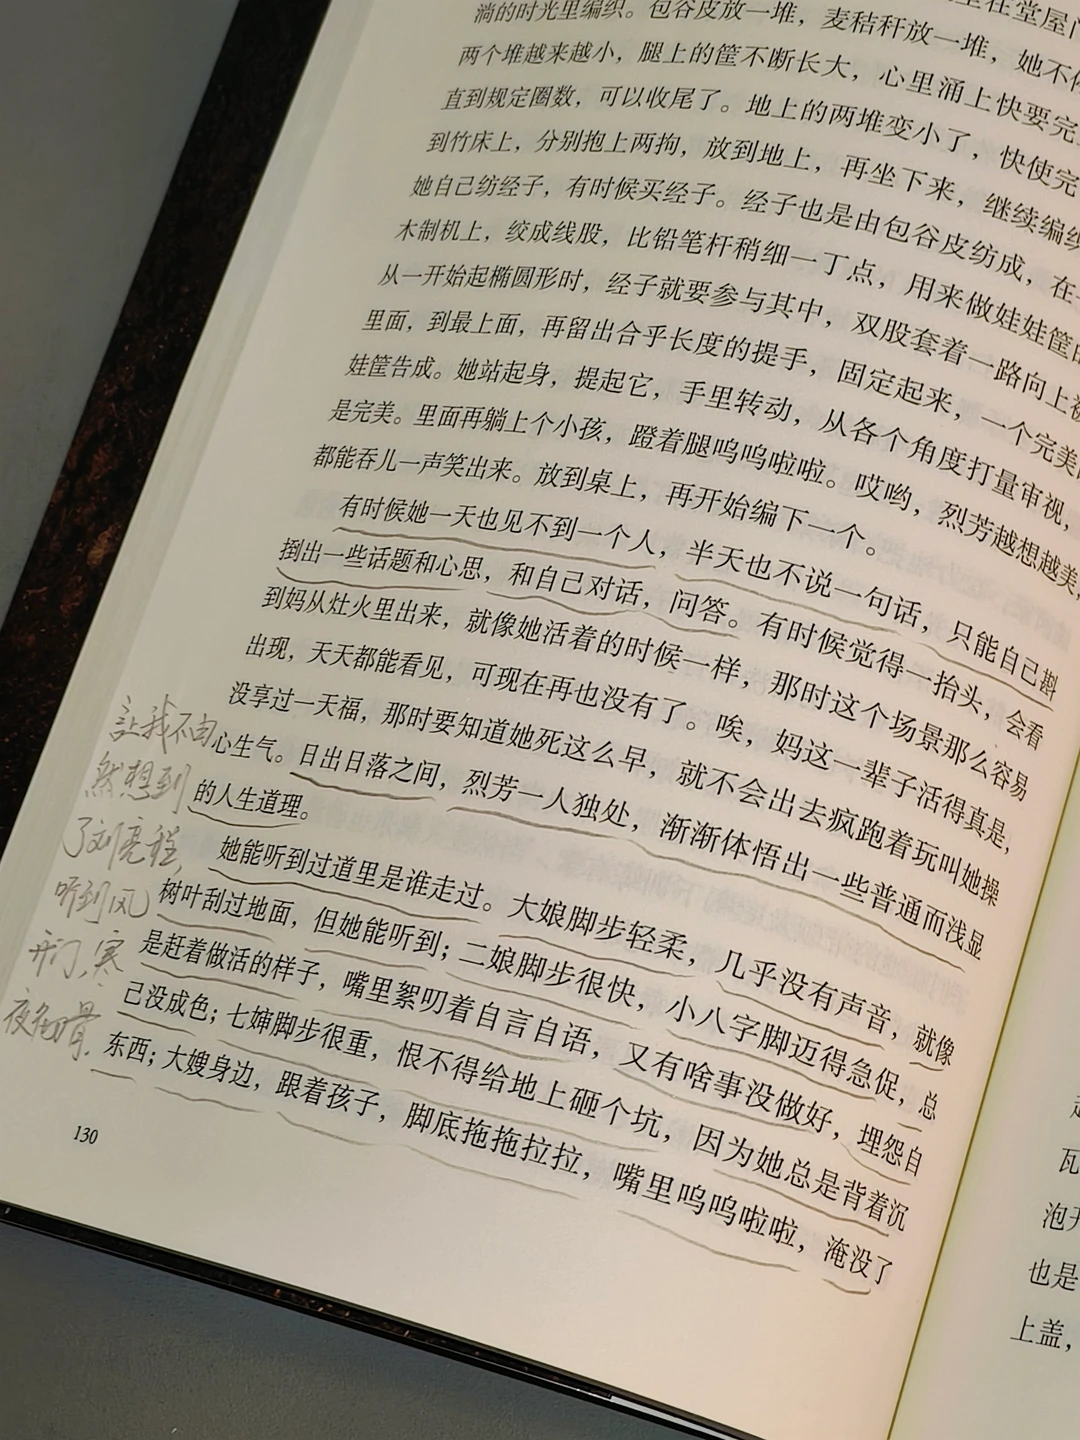 淌的时光里编织。包谷皮放一堆，麦秸秆放一堆，她不
两个堆越来越小，腿上的筐不断长大，心里涌上快要完
直到规定圈数，可以收尾了。地上的两堆变小了，快使完
到竹床上，分别抱上两拘，放到地上，再坐下来，继续编织
她自己纺经子，有时候买经子。经子也是由包谷皮纺成，在
木制机上，绞成线股，比铅笔杆稍细一丁点，用来做娃娃筐
从一开始起椭圆形时，经子就要参与其中，双股套着一路向上
里面，到最上面，再留出合乎长度的提手，固定起来，一个完美
娃筐告成。她站起身，提起它，手里转动，从各个角度打量审视，
是完美。里面再躺上个小孩，蹬着腿呜呜啦啦。哎哟，烈芳越想越美，
都能吞儿一声笑出来。放到桌上，再开始编下一个。
有时候她一天也见不到一个人，半天也不说一句话，只能自己斟
捯出一些话题和心思，和自己对话，问答。有时候觉得一抬头，会看
到妈从灶火里出来，就像她活着的时候一样，那时这个场景那么容易
出现，天天都能看见，可现在再也没有了。唉，妈这一辈子活得真是，
没享过一天福，那时要知道她死这么早，就不会出去疯跑着玩叫她操
心生气。日出日落之间，烈芳一人独处，渐渐体悟出一些普通而浅显
的人生道理。
她能听到过道里是谁走过。大娘脚步轻柔，几乎没有声音，就像
树叶刮过地面，但她能听到；二娘脚步很快，小八字脚迈得急促，总
是赶着做活的样子，嘴里絮叨着自言自语，又有啥事没做好，埋怨自
己没成色；七婶脚步很重，恨不得给地上砸个坑，因为她总是背着沉
东西；大嫂身边，跟着孩子，脚底拖拖拉拉，嘴里呜呜啦啦，淹没了
130
让我不由
然想到
了刘亮程，
听到风
开门，寒
夜彻骨。
瓦
泡
也是
上盖，